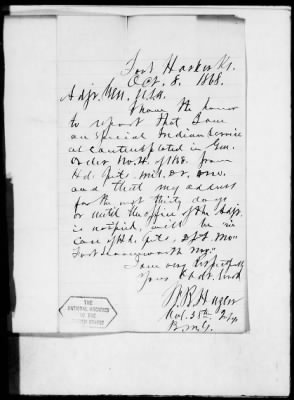 Fort Harker Ks.
Oct. 8. 1868.
Adjt. Gen. U.S.A.
I have the honor
to report that I am
on Special Indian Service
as contemplated in Gen.
Order No. 4. of 1868. from
Hd. Qrts. Mil. Dv. Mo.
and that my address
for the next thirty days
or until the office of the Adjt.
is notified, will be in
care of Hd. Qrts. Dpt. Mo
Fort Leavenworth
I am very respectfully
Your Obdt. Servt.
W. B. Hazen
Col. 38th Inf.
THE
NATIONAL ARCHIVES
OF THE
UNITED STATES